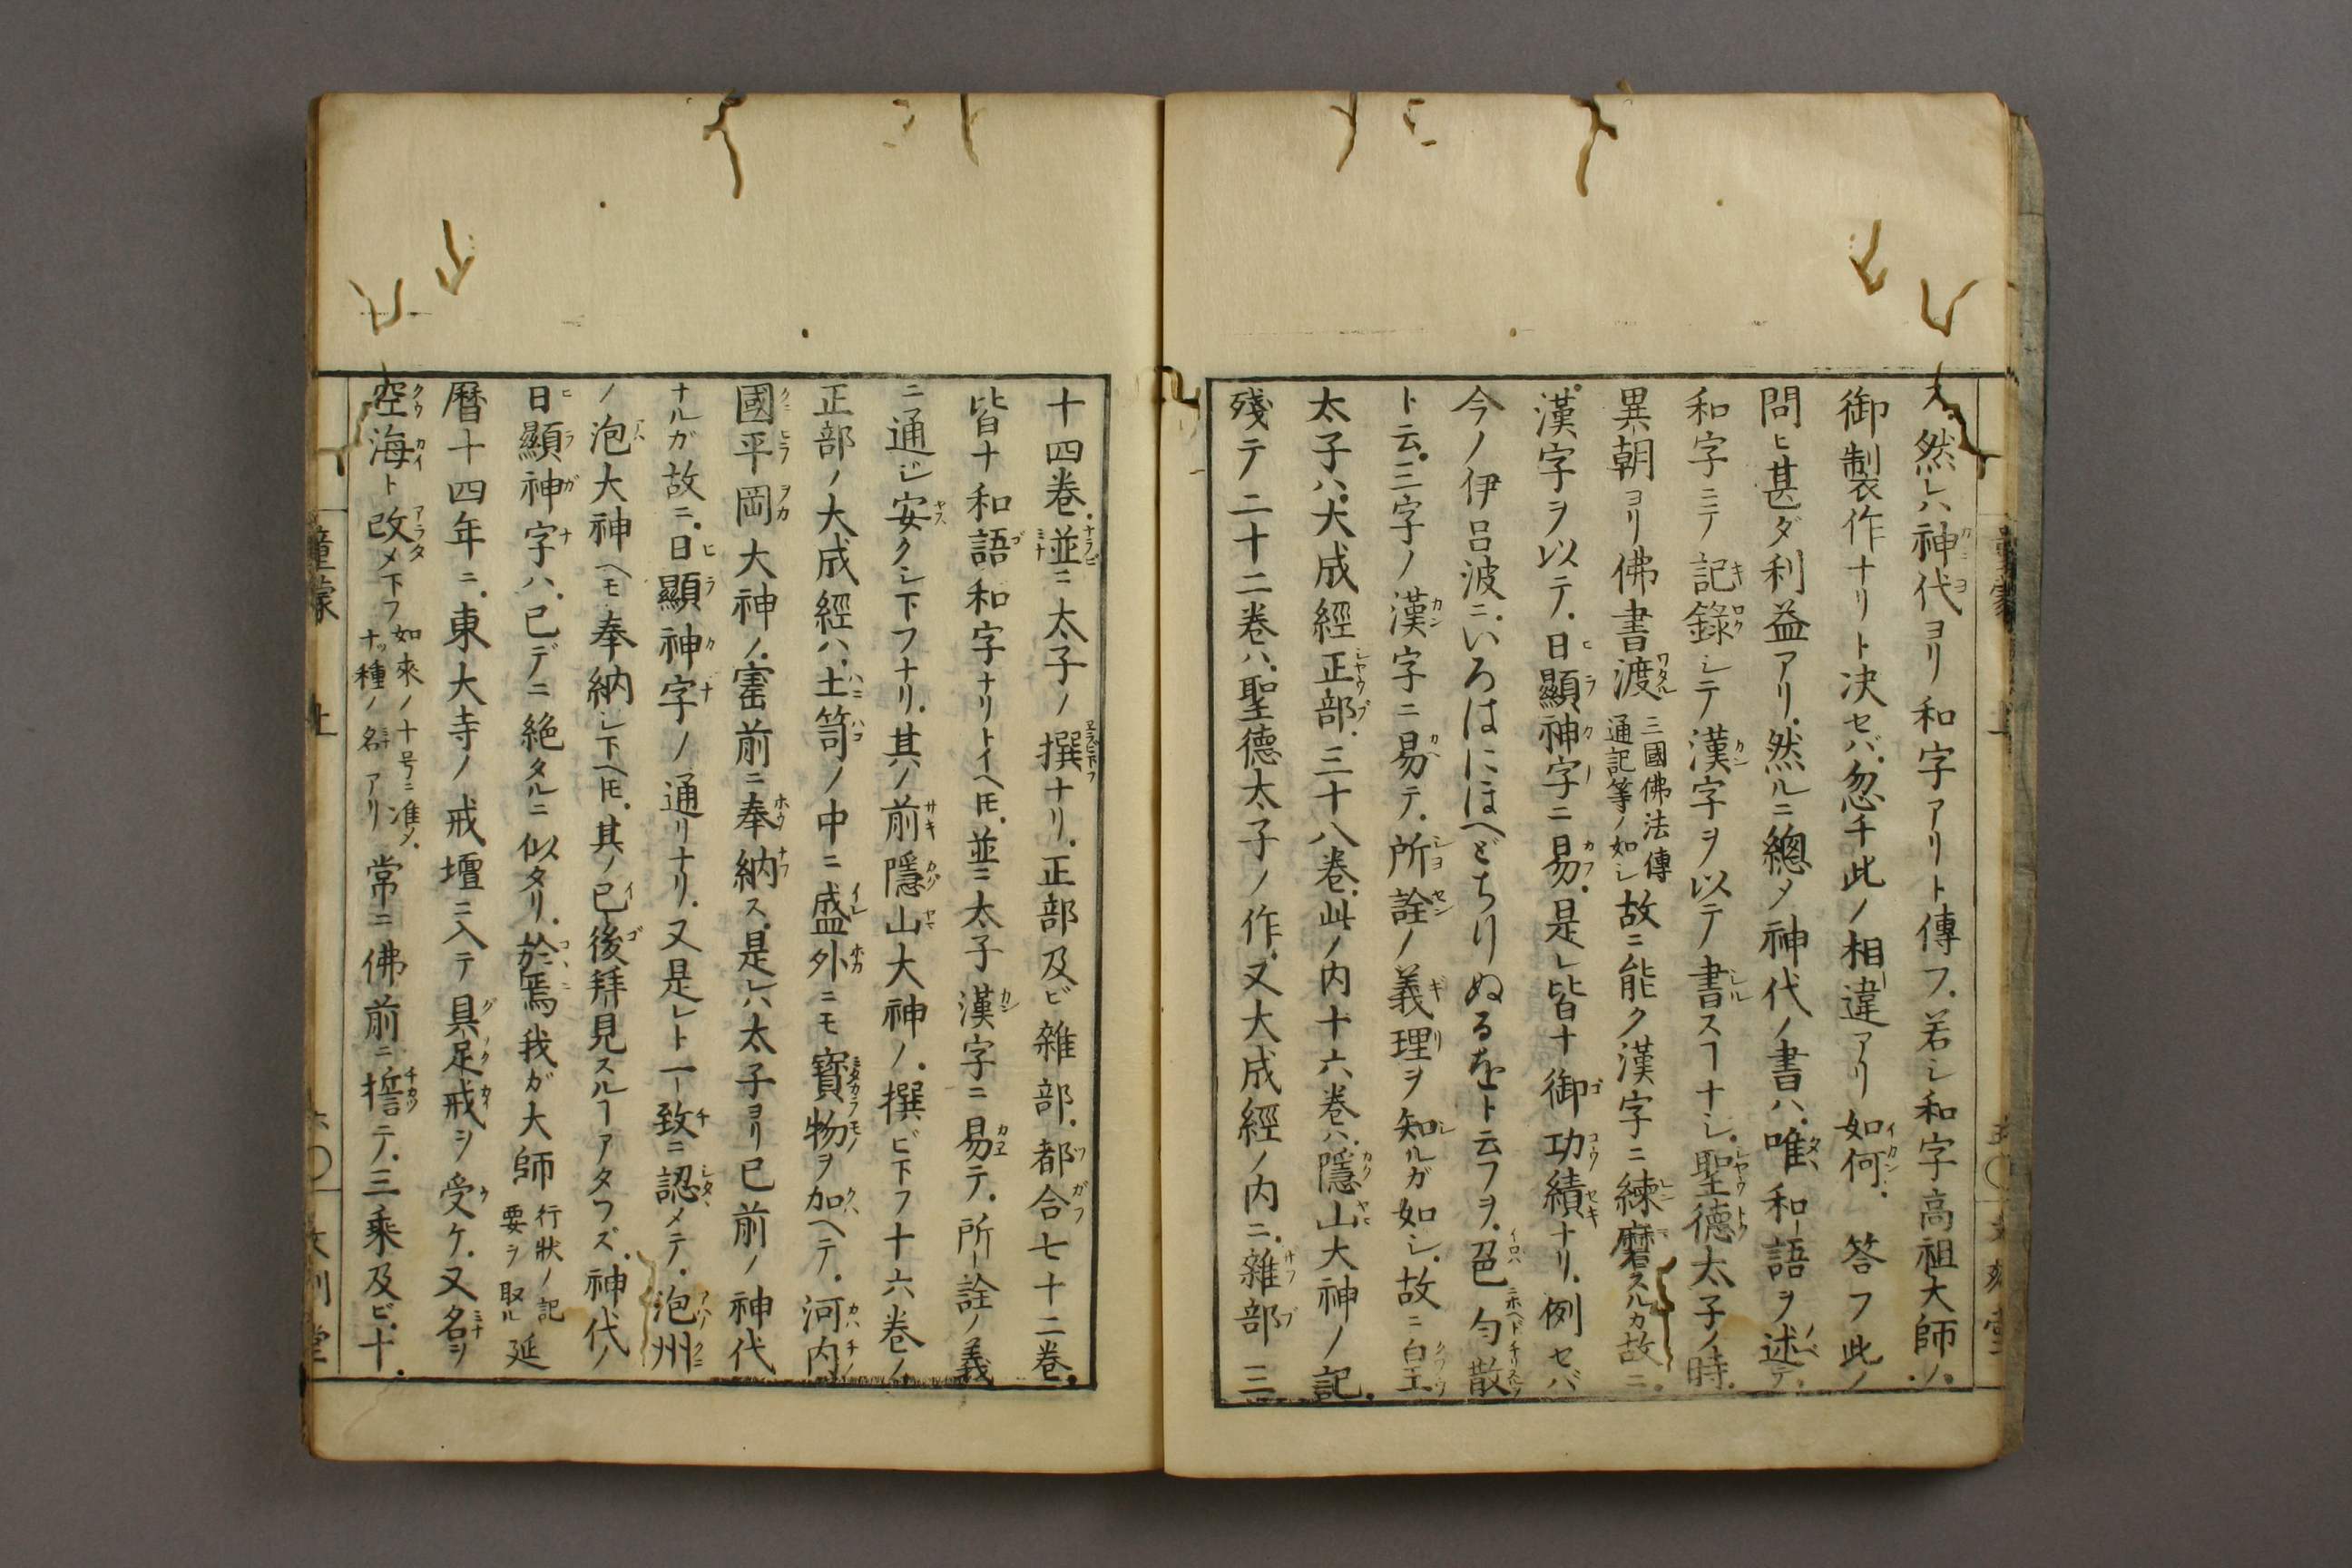 ス.然レハ神代ヨリ和字アリト傳フ.若シ和字高祖大師ノ.
御製作ナリト决セバ.忽チ此ノ相違アリ如何.答フ此ノ
問ヒ甚ダ利益アリ.然ルニ總メ神代ノ書ハ.唯和語ヲ述テ.
和字ニテ記録シテ漢字ヲ以テ書スヿナシ.聖德太子ノ時.
異朝ヨリ佛書渡三國佛法傳通記等ノ如シ故ニ能ク漢字ニ練磨スルカ故ニ.
漢字ヲ以テ.日顯神字ニ易.是レ皆ナ御功績ナリ.例セバ
今ノ伊呂波ニ.いろはにほへどちりぬるをト云フヲ.色匂散
ト云.三字ノ漢字ニ易テ.所詮ノ義理ヲ知ルガ如シ.故ニ白王.
太子ハ.大成經正部.三十八巻.此ノ内十六巻ハ.隱山大神ノ記.
殘テ二十二巻ハ.聖德太子ノ作.又大成經ノ内ニ.雜部三
十四巻.並ニ太子ノ撰ナリ.正部及ビ雜部.都合七十二巻.
皆ナ和語和字ナリトイヘ𪜈.並ニ太子漢字ニ易テ.所詮ノ義
ニ通ジ安クシ下フナリ.其ノ前隱山大神ノ.撰ビ下フ十六巻ノ
正部ノ大成經ハ.土笥ノ中ニ盛外ニモ寶物ヲ加ヘテ.河内
國平岡大神ノ.寚前ニ奉納ス.是レハ太子ヨリ已前ノ神代
ナルガ故ニ.日顯神字ノ通リナリ.又是レト一致ニ認メテ.泡州
ノ泡大神ヘモ奉納シ下ヘ𪜈.其ノ已後拜見スルヿアタワズ.神代ノ
日顯神字ハ.已デニ絶タルニ似タリ.於焉我ガ大師行狀ノ記要ヲ取ル延
暦十四年ニ.東大寺ノ戒壇ニ入テ具足戒ヲ受ケ.又名ヲ
空海ト改メ下フ如來ノ十号ニ准メ.十種ノ名アリ常ニ佛前ニ誓テ.三乘及ビ.十.
童蒙 上